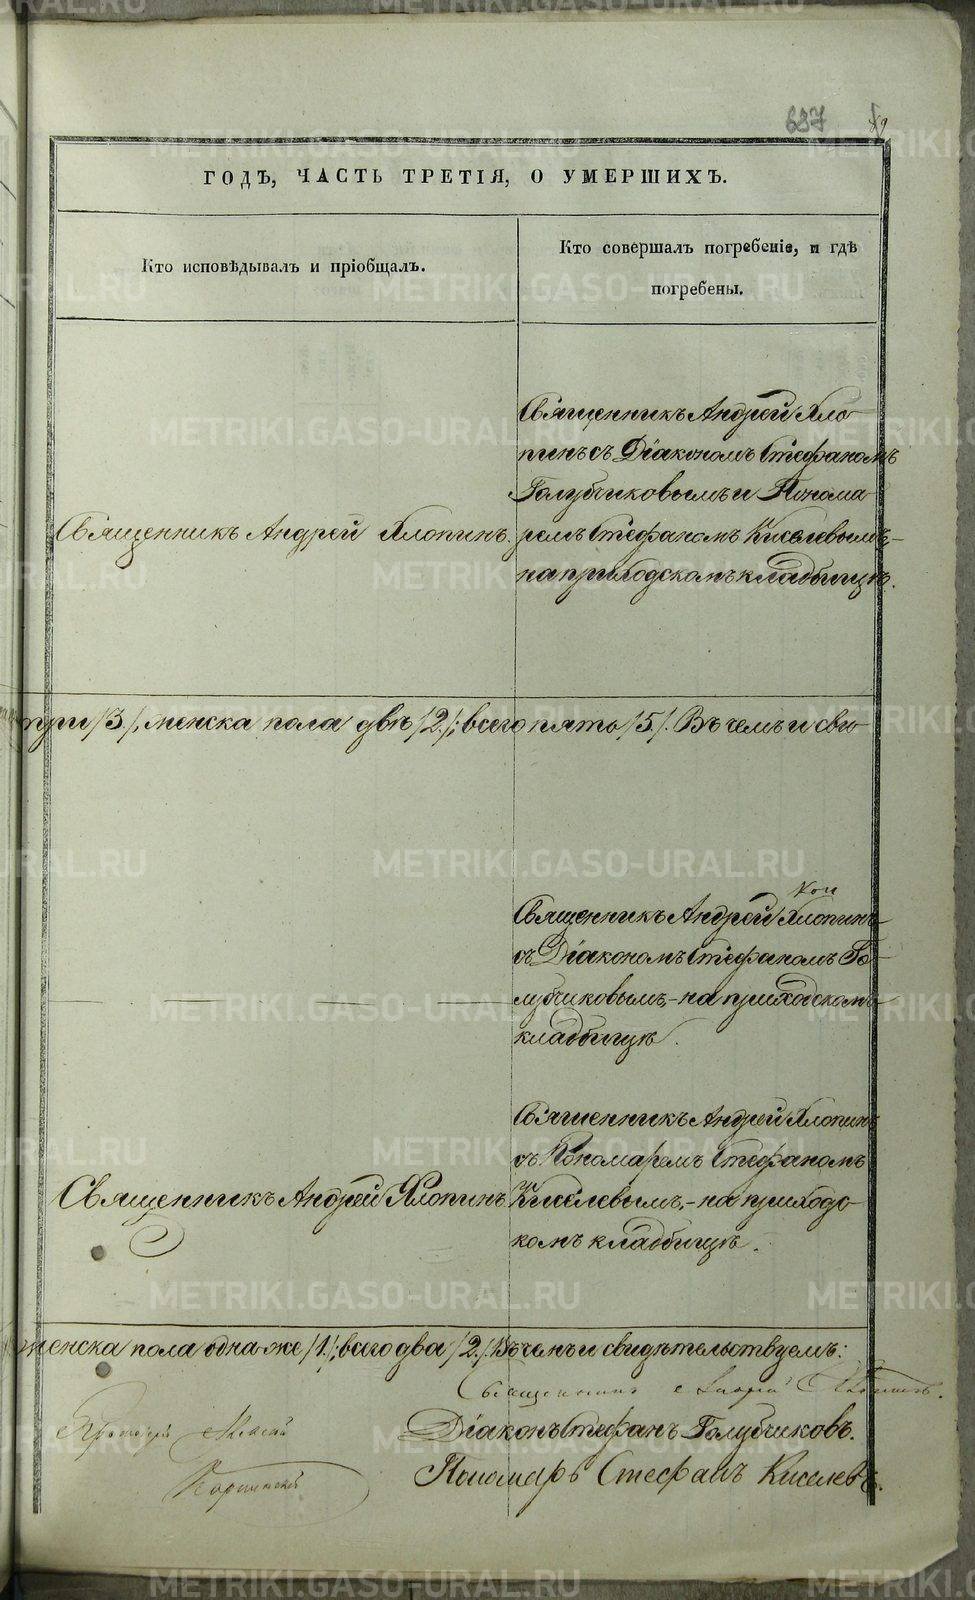 687 89
ГОДЪ, ЧАСТЬ ТРЕТІЯ, О УМЕРШИХЪ.
Кто исповѣдывалъ и пріобщалъ.
Кто совершалъ погребеніе, и гдѣ
погребены.
Священникъ Андрей Хлопинъ.
Священникъ Андрей Хло
пинъ съ Діакономъ Стефаномъ
Голубчиковымъ и Понома
ремъ Стефаномъ Киселевымъ
на приходскомъ кладбищѣ.
три /3/, женска пола двѣ /2/; всего пять /5/. Въ чемъ и сви
Священникъ Андрей Хлопинъ
съ Діакономъ Стефаномъ Го
лубчиковымъ, - на приходскомъ
кладбищѣ.
Священникъ Андрей Хлопинъ
Священникъ Андрей Хлопинъ
съ Пономаремъ Стефаномъ
Киселевымъ, - на приходс
комъ кладбищѣ.
женска пола одна же /1/; всего два /2/. Въ чемъ и свидѣтельствуемъ:
Священникъ Андрей Хлопинъ.
Діаконъ Стефанъ Голубчиковъ.
Пономарь Стефанъ Киселевъ.
METRIKI.GASO-URAL.RU